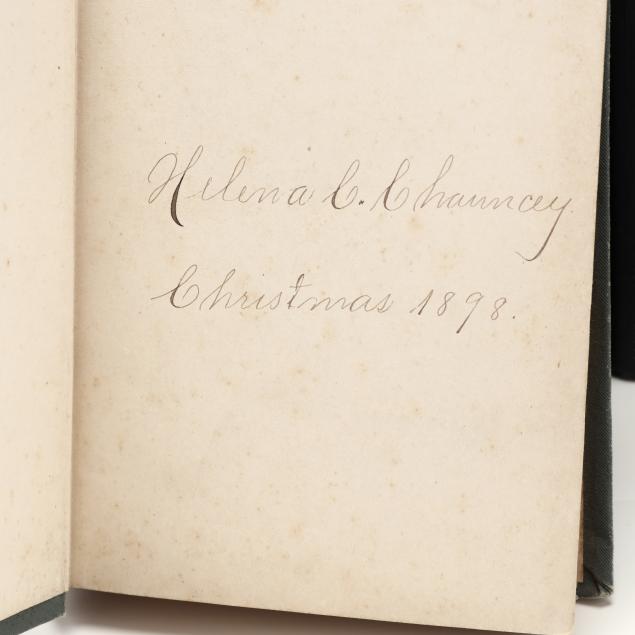 Helena C. Chauncey
Christmas 1898.